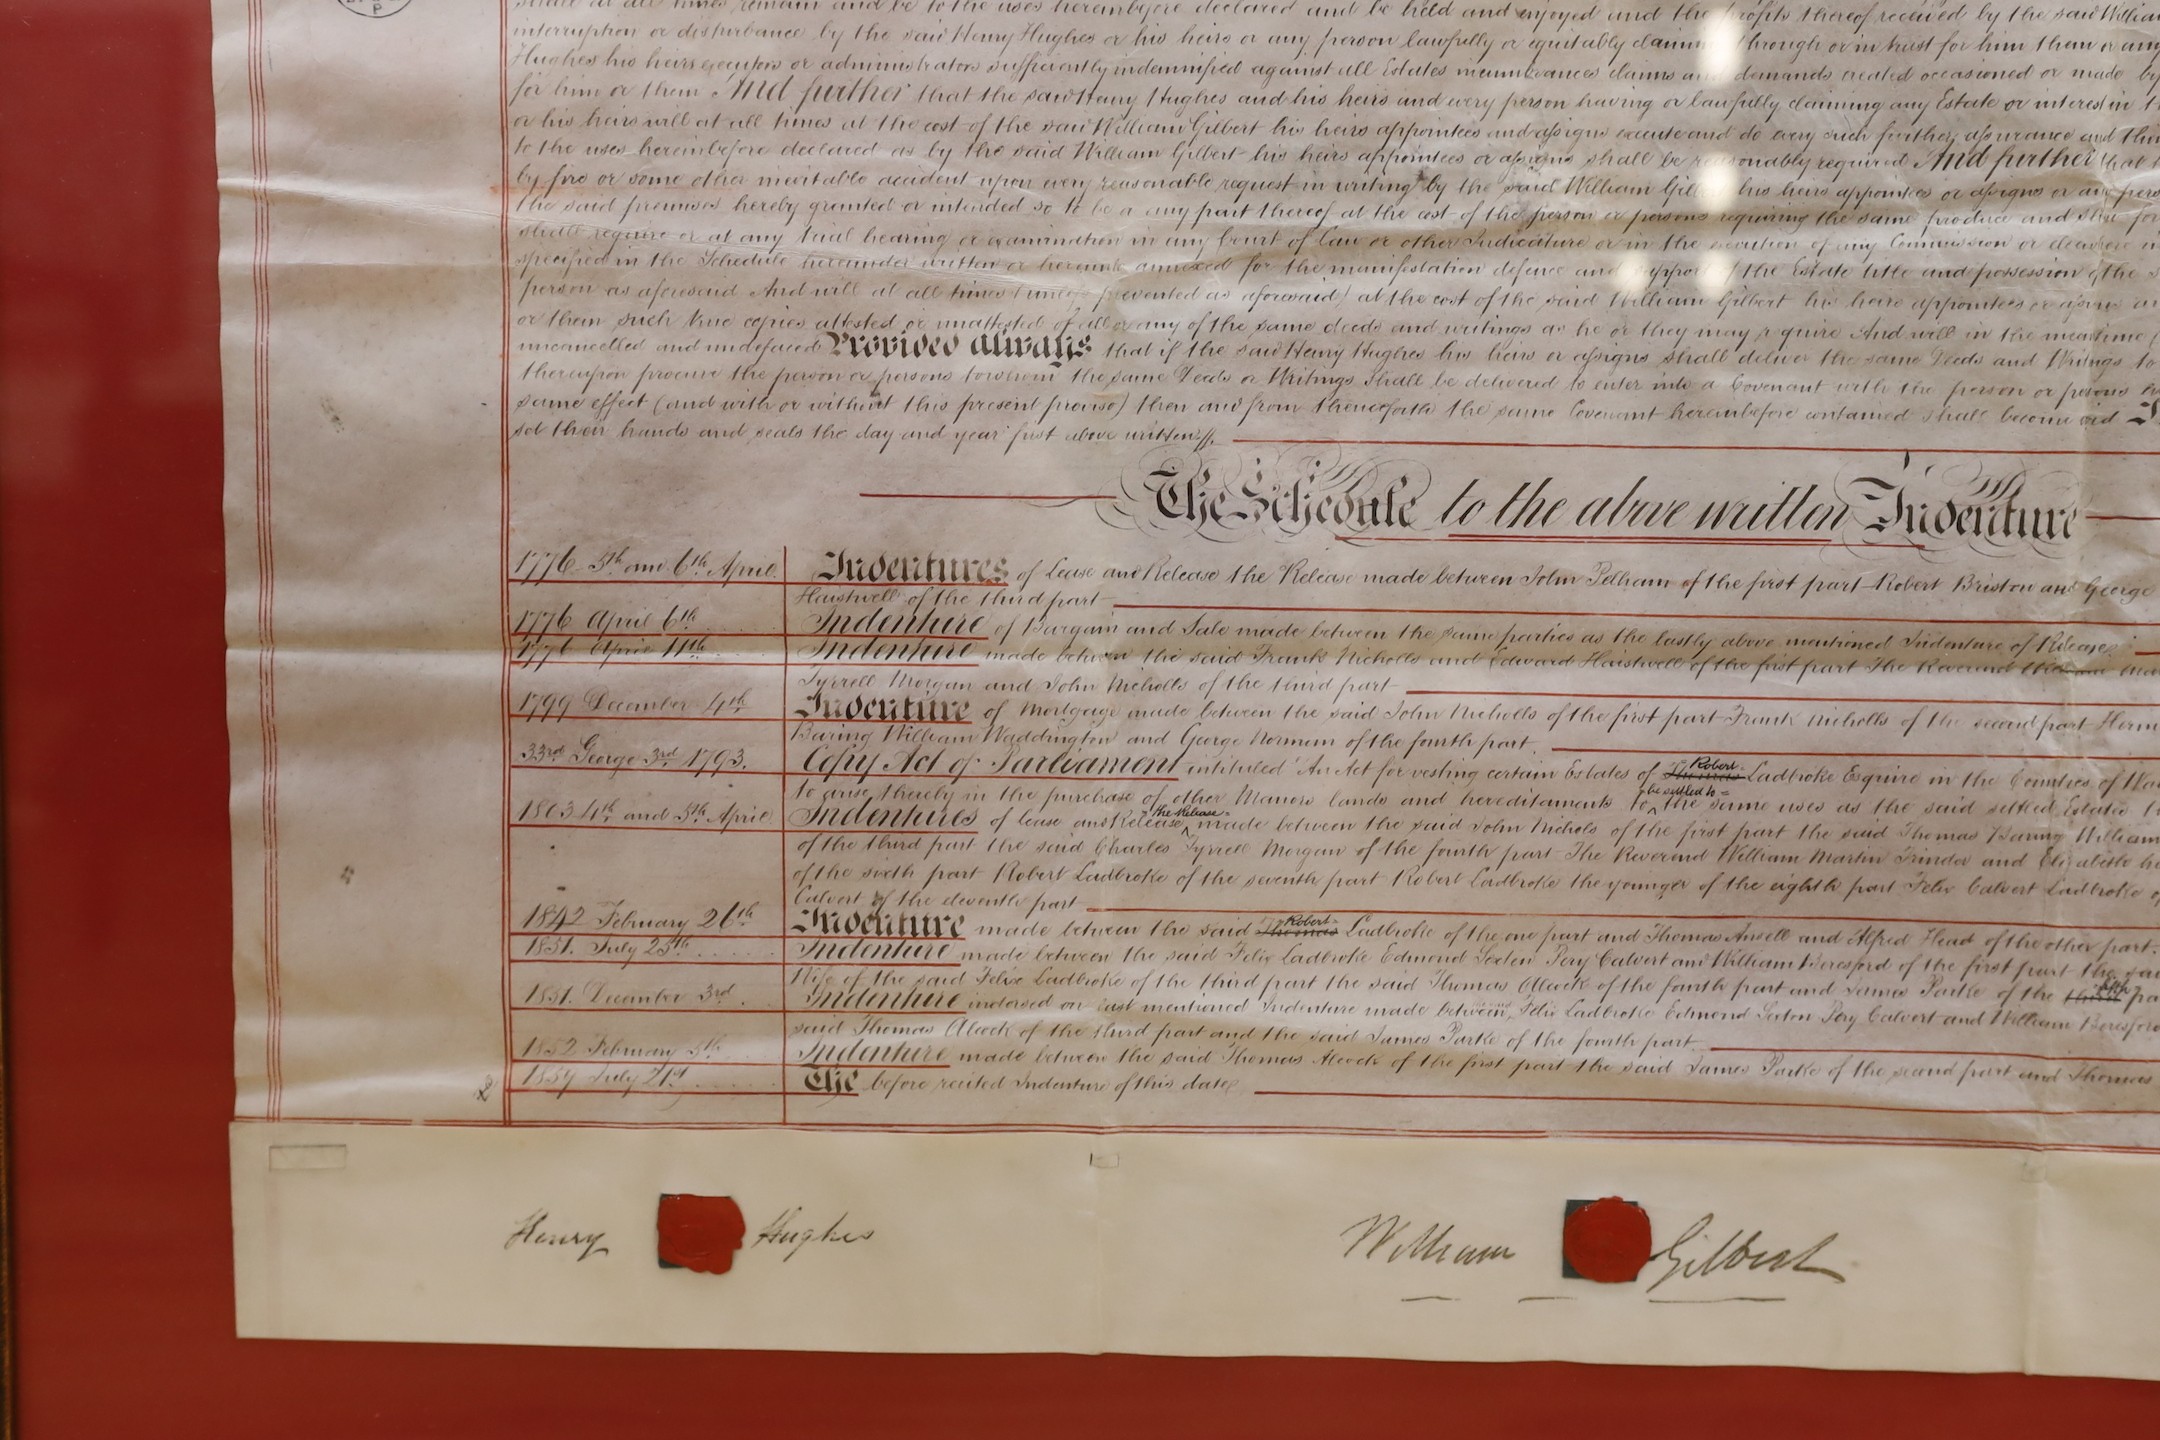 shall at all times remain and be to the uses hereinbefore declared and be held and enjoyed and the profits thereof received by the said William
interruption or disturbance by the said Henry Hughes or his heirs or any person lawfully or equitably claiming through or in trust for him them or any
Hughes his heirs executors or administrators sufficiently indemnified against all Estates incumbrances claims and demands created occasioned or made by
for him or them And further that the said Henry Hughes and his heirs and every person having or lawfully claiming any Estate or interest in
or his heirs will at all times at the cost of the said William Gilbert his heirs appointees and assigns execute and do every such further assurance and
to the uses hereinbefore declared as by the said William Gilbert his heirs appointees or assigns shall be reasonably required And further that
by fire or some other inevitable accident upon every reasonable request in writing by the said William Gilbert his heirs appointees or assigns or any
the said premises hereby granted or intended so to be or any part thereof at the cost of the person or persons requiring the same produce and shew
shall require or at any trial hearing or examination in any Court of Law or other Judicature or in the execution of any Commission or
specified in the Schedule hereunder written or hereunto annexed for the manifestation defence and support of the Estate title and possession of the
person as aforesaid And will at all times (unless prevented as aforesaid) at the cost of the said William Gilbert his heirs appointees or assigns
or them such true copies attested or unattested of all or any of the same deeds and writings as he or they may require And will in the meantime
uncancelled and undefaced Provided always that if the said Henry Hughes his heirs or assigns shall deliver the same Deeds and Writings to
thereupon procure the person or persons to whom the same Deeds or Writings shall be delivered to enter into a Covenant with the person or persons
same effect (and with or without this present proviso) then and from thenceforth the same Covenant hereinbefore contained shall become void
set their hands and seals the day and year first above written
The Schedule to the above written Indenture
1776 5th and 6th April. Indentures of Lease and Release the Release made between John Pelham of the first part Robert Bristow and George
Haistwell of the third part
1776 April 6th Indenture of Bargain and Sale made between the same parties as the lastly above mentioned Indenture of Release
1776 April 11th Indenture made between the said Frank Nicholls and Edward Haistwell of the first part The Reverend
Tyrrell Morgan and John Nicholls of the third part
1799 December 4th Indenture of Mortgage made between the said John Nicholls of the first part Frank Nicholls of the second part
Baring William Waddington and George Norman of the fourth part
33rd George 3rd 1793. Copy Act of Parliament intituled "An Act for vesting certain Estates of Thomas Robert Ladbroke Esquire in the Counties of
to arise thereby in the purchase of other Manors lands and hereditaments to be settled to the same uses as the said settled Estates
1803 4th and 5th April Indentures of lease and Release the Release made between the said John Nichols of the first part the said Thomas Baring William
of the third part the said Charles Tyrrell Morgan of the fourth part The Reverend William Martin Trinder and Elizabeth
of the sixth part Robert Ladbroke of the seventh part Robert Ladbroke the younger of the eighth part Felix Calvert Ladbroke
Calvert of the eleventh part
1842 February 26th Indenture made between the said Thomas Robert Ladbroke of the one part and Thomas Ansell and Alfred Head of the other part.
1851. July 25th Indenture made between the said Felix Ladbroke Edmond Sexten Pery Calvert and William Beresford of the first part the
Wife of the said Felix Ladbroke of the third part the said Thomas Alcock of the fourth part and James Parke of the third fifth
1851. December 3rd. Indenture indorsed on last mentioned Indenture made between Felix Ladbroke Edmond Sexton Pery Calvert and William Beresford
said Thomas Alcock of the third part and the said James Parke of the fourth part
1852 February 5th Indenture made between the said Thomas Alcock of the first part the said James Parke of the second part and Thomas
1859 July 21st The before recited Indenture of this date
Henry Hughes
William Gilbert